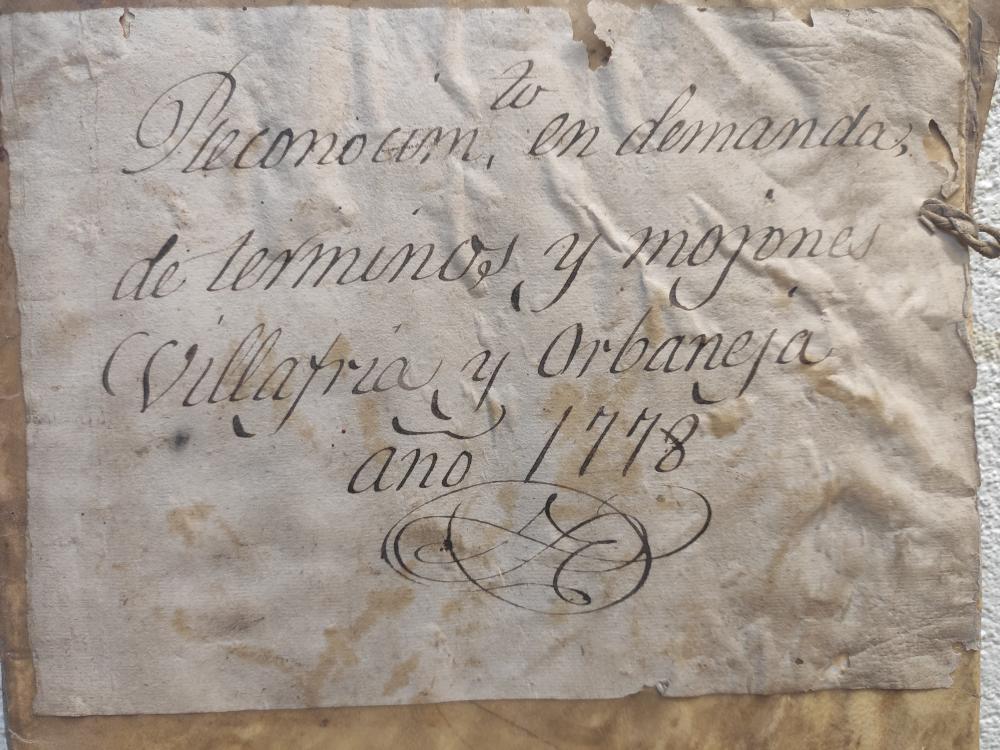 Reconocim.to en demanda,
de terminos y mojones
Villafria y Orbaneja
año 1778